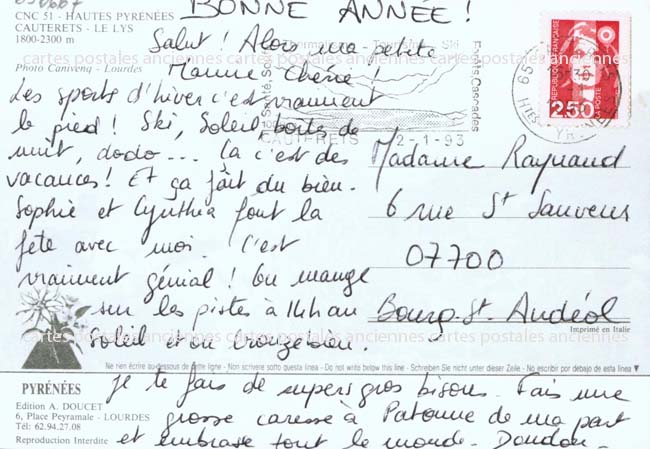 BONNE ANNÉE !
CNC 51 - HAUTES PYRÉNÉES
CAUTERETS - LE LYS
1800-2300 m
Photo Canivenq - Lourdes
Salut ! Alors ma petite
Manne Chérie !
Les sports d'hiver c'est vraiment
le pied ! Ski, Soleil, boîtes de
nuit, dodo... Ca c'est des
vacances ! Et ça fait du bien.
Sophie et Cynthia font la
fête avec moi. C'est
vraiment génial ! On mange
sur les pistes à
Soleil et on
Je te fais de supers gros bisous. Fais une
grosse caresse à Patoune de ma part
et embrasse tout le monde. Doudou
CAUTERETS
2-1-93
RÉPUBLIQUE FRANÇAISE
2,50
LA POSTE
Madame Raynaud
6 rue St Sauveur
07700
Bourg-St-Andéol
Imprimé en Italie
Ne rien écrire au-dessous de cette ligne - Non scrivere sotto questa linea - Do not write below this line - Schreiben Sie nicht unter dieser Zeile - No escribir por debajo de esta linea
PYRÉNÉES
Edition A. DOUCET
6, Place Peyramale - LOURDES
Tél: 62.94.27.08
Reproduction Interdite
cartes postales anciennes cartes postales anciennes cartes postales anciennes